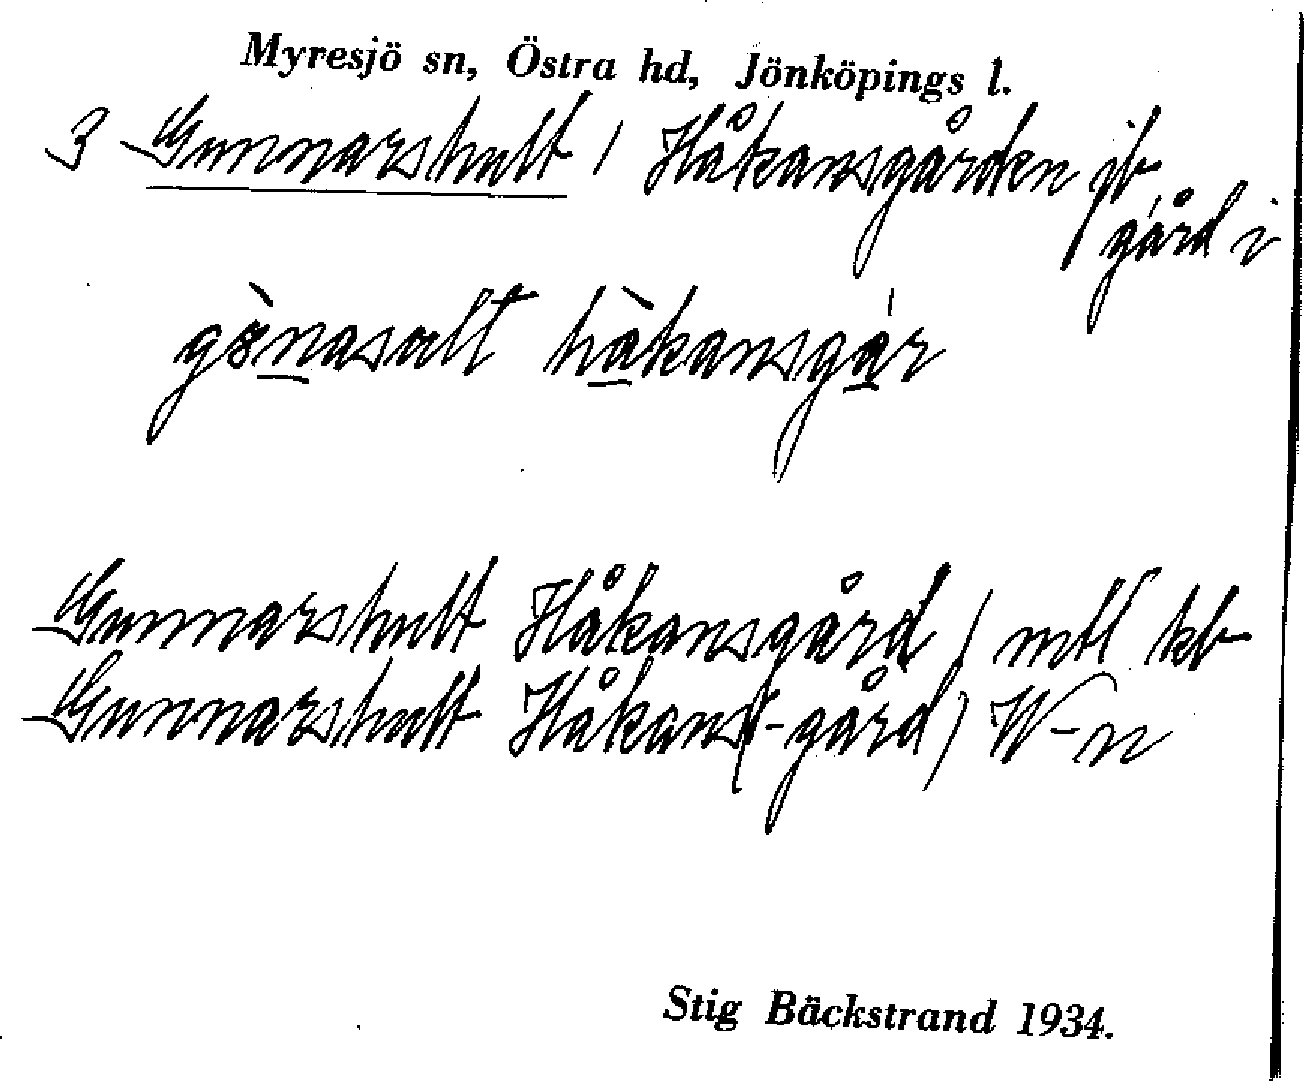 Myresjö sn, Östra hd, Jönköpings l.
3 Gunnarshult, Håkansgården jb
gård i
håkansgár
Gunnarshult Håkansgård, mtl kb
Gunnarshult Håkans(-gård) W-n
Stig Bäckstrand 1934.